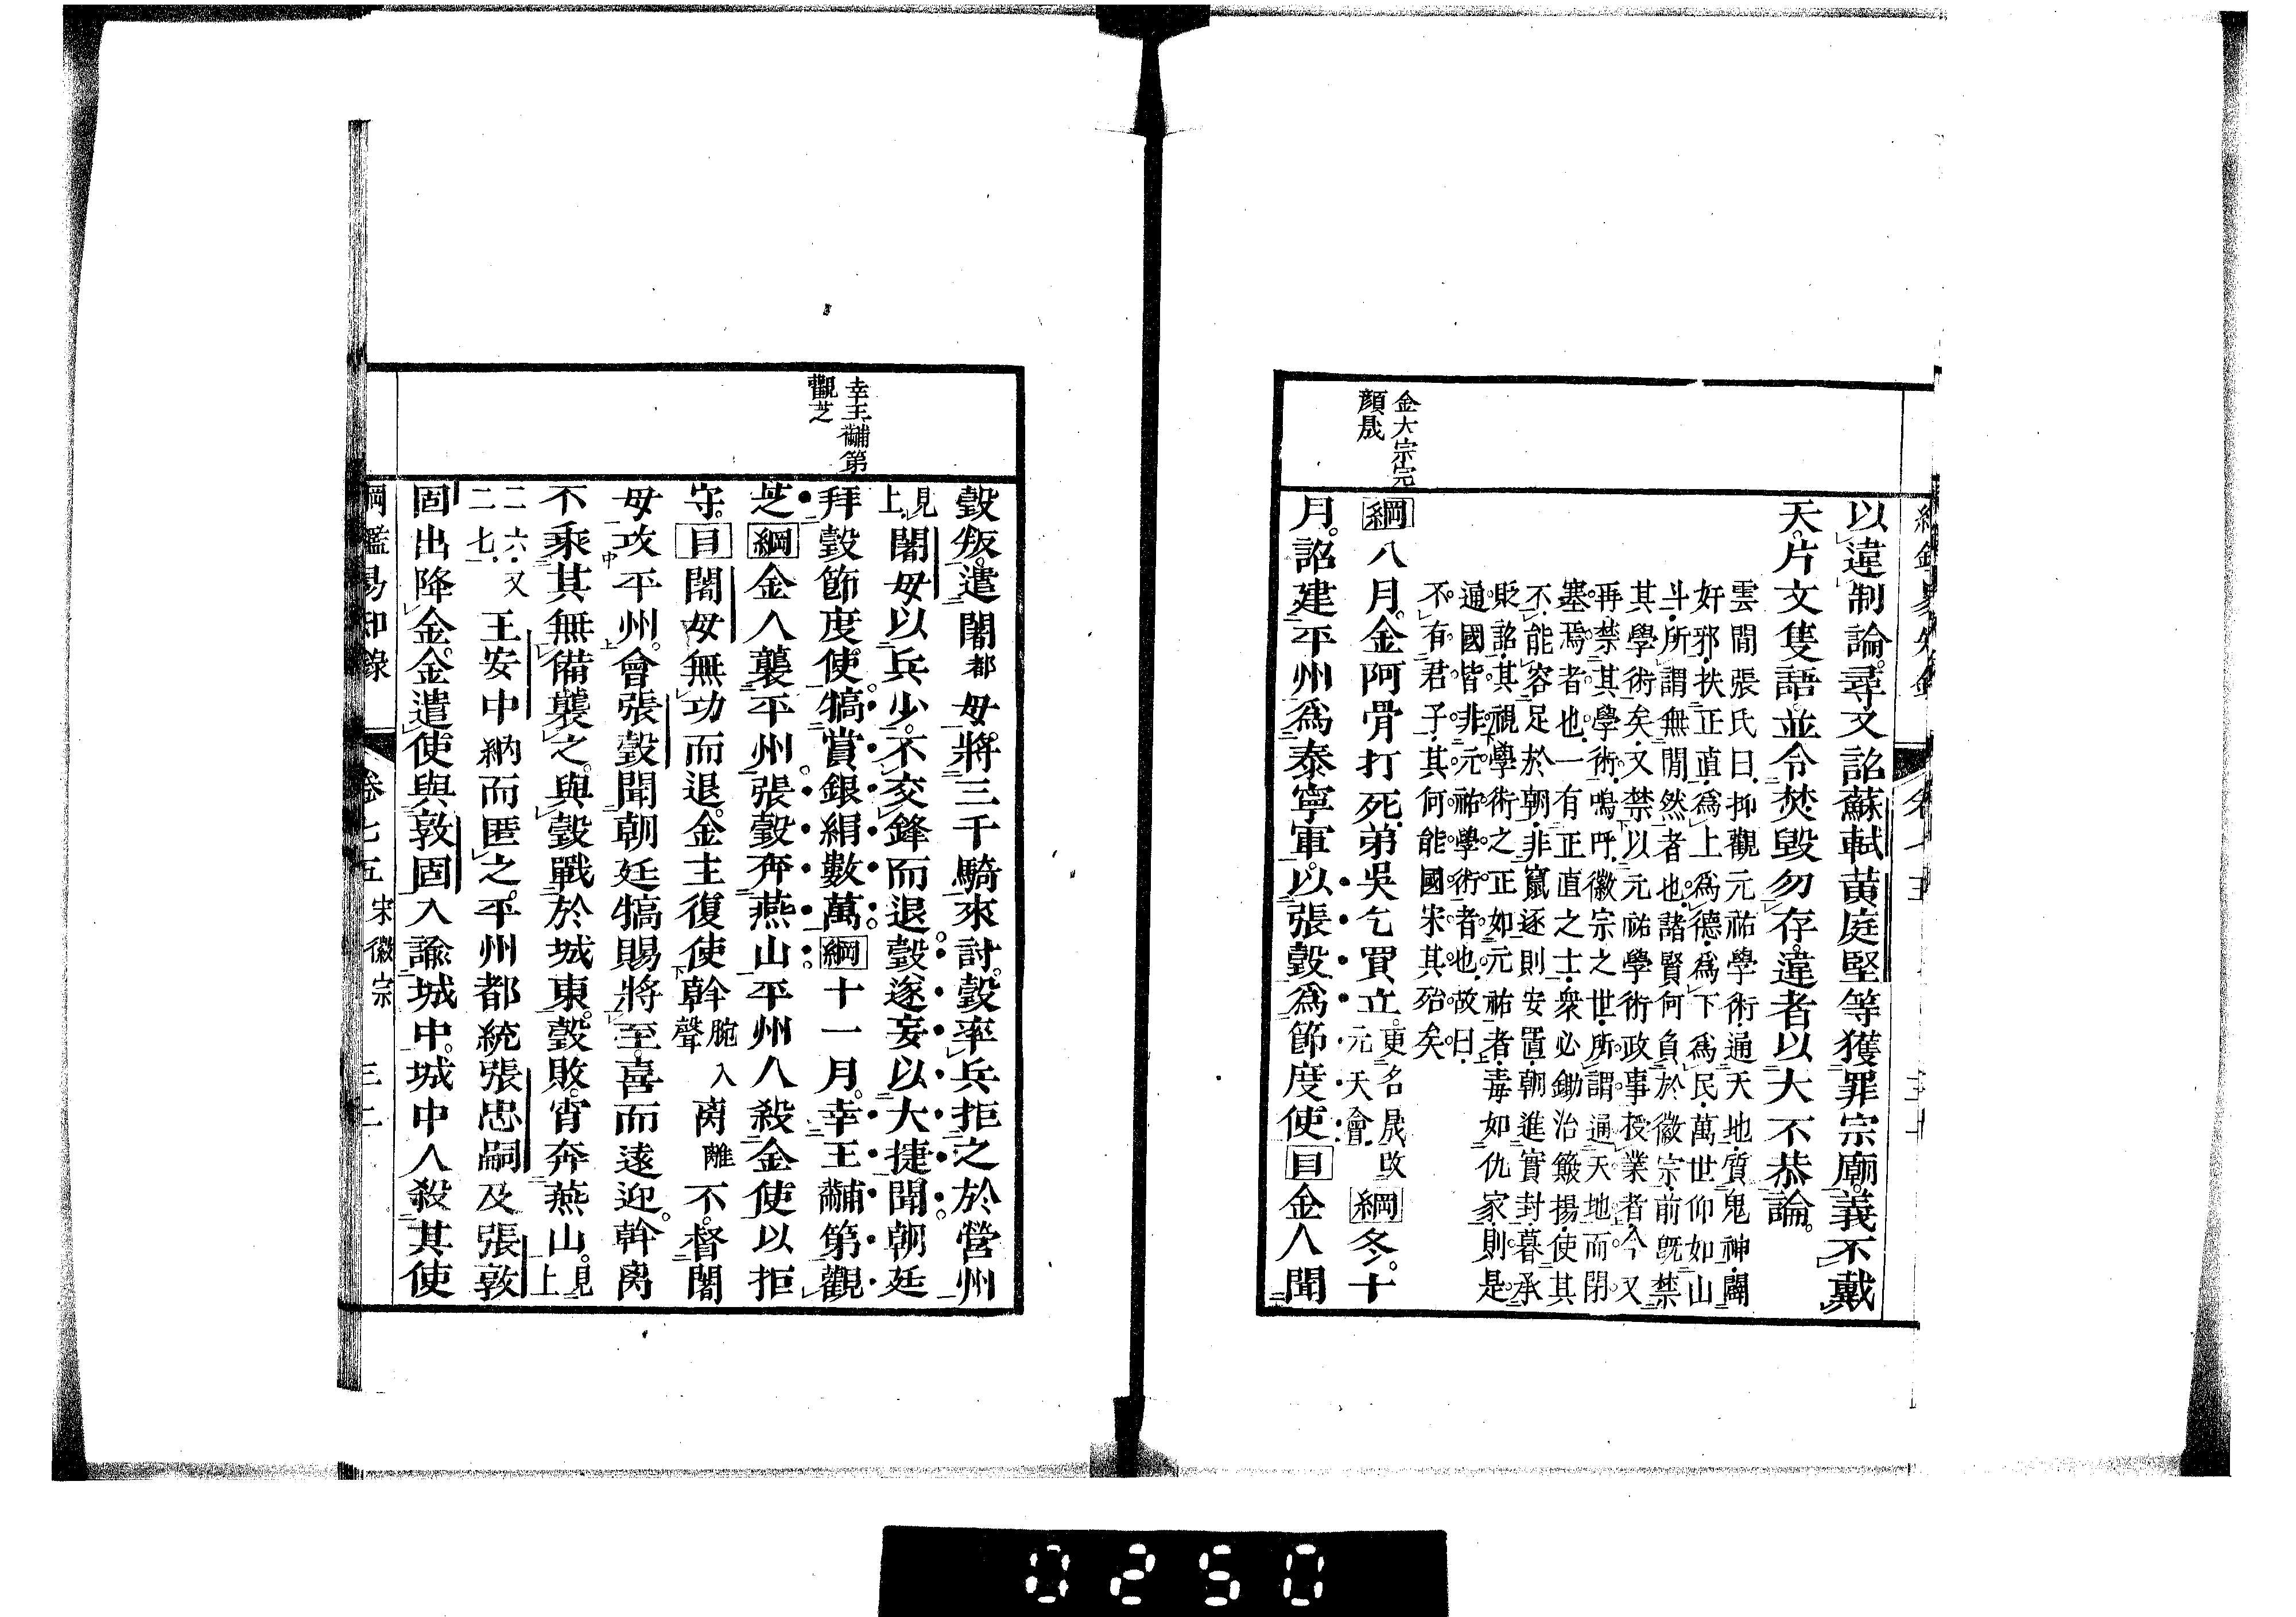 以違制論。尋又詔蘇軾黃庭堅等獲罪宗廟。義不戴
天。片文隻語。並令焚毀勿存。違者以大不恭論。
雲間張氏曰。抑觀元祐學術。通天地。質鬼神。闢
奸邪。扶正直。爲上爲德。爲下爲民。萬世仰如山
斗。所謂無閒然者也。諸賢何負於徽宗。前既禁
其學術矣。又禁以元祐學術政事授業者。今又
再禁其學術。嗚呼。徽宗之世。所謂通天地而閉
塞焉者也。一有正直之士。衆必鋤治籛揚。使其
不能容足於朝。非竄逐則安置。朝進實封。暮承
貶詔。其視學術之正如元祐者。毒如仇家。則是
通國皆非元祐學術者也。故曰。
不有君子。其何能國。宋其殆矣。
金太宗完
顏晟
綱八月。金阿骨打死。弟吳乞買立。更名晟改
元天會。綱冬。十
月。詔建平州爲泰寧軍。以張瑴爲節度使。目金人聞
瑴叛。遣闍都母。將三千騎來討。瑴率兵拒之於營州
見
上。闍母以兵少。不交鋒而退。瑴遂妄以大捷聞。朝廷
幸王黼第
觀芝
拜瑴節度使。犒賞銀絹數萬。綱十一月。幸王黼第觀
芝。綱金人襲平州。張瑴奔燕山。平州人殺金使以拒
守。目闍母無功而退。金主復使斡腕入
聲离離不。督闍
母攻平州。會張瑴聞朝廷犒賜將至。喜而遠迎。斡离
不乘其無備襲之。與瑴戰於城東。瑴敗。宵奔燕山。見
上
二六。又
二七。王安中納而匿之。平州都統張忠嗣及張敦
固出降金。金遣使與敦固入諭城中。城中人殺其使
綱鑑易知錄 卷七五 宋徽宗 三二
0250